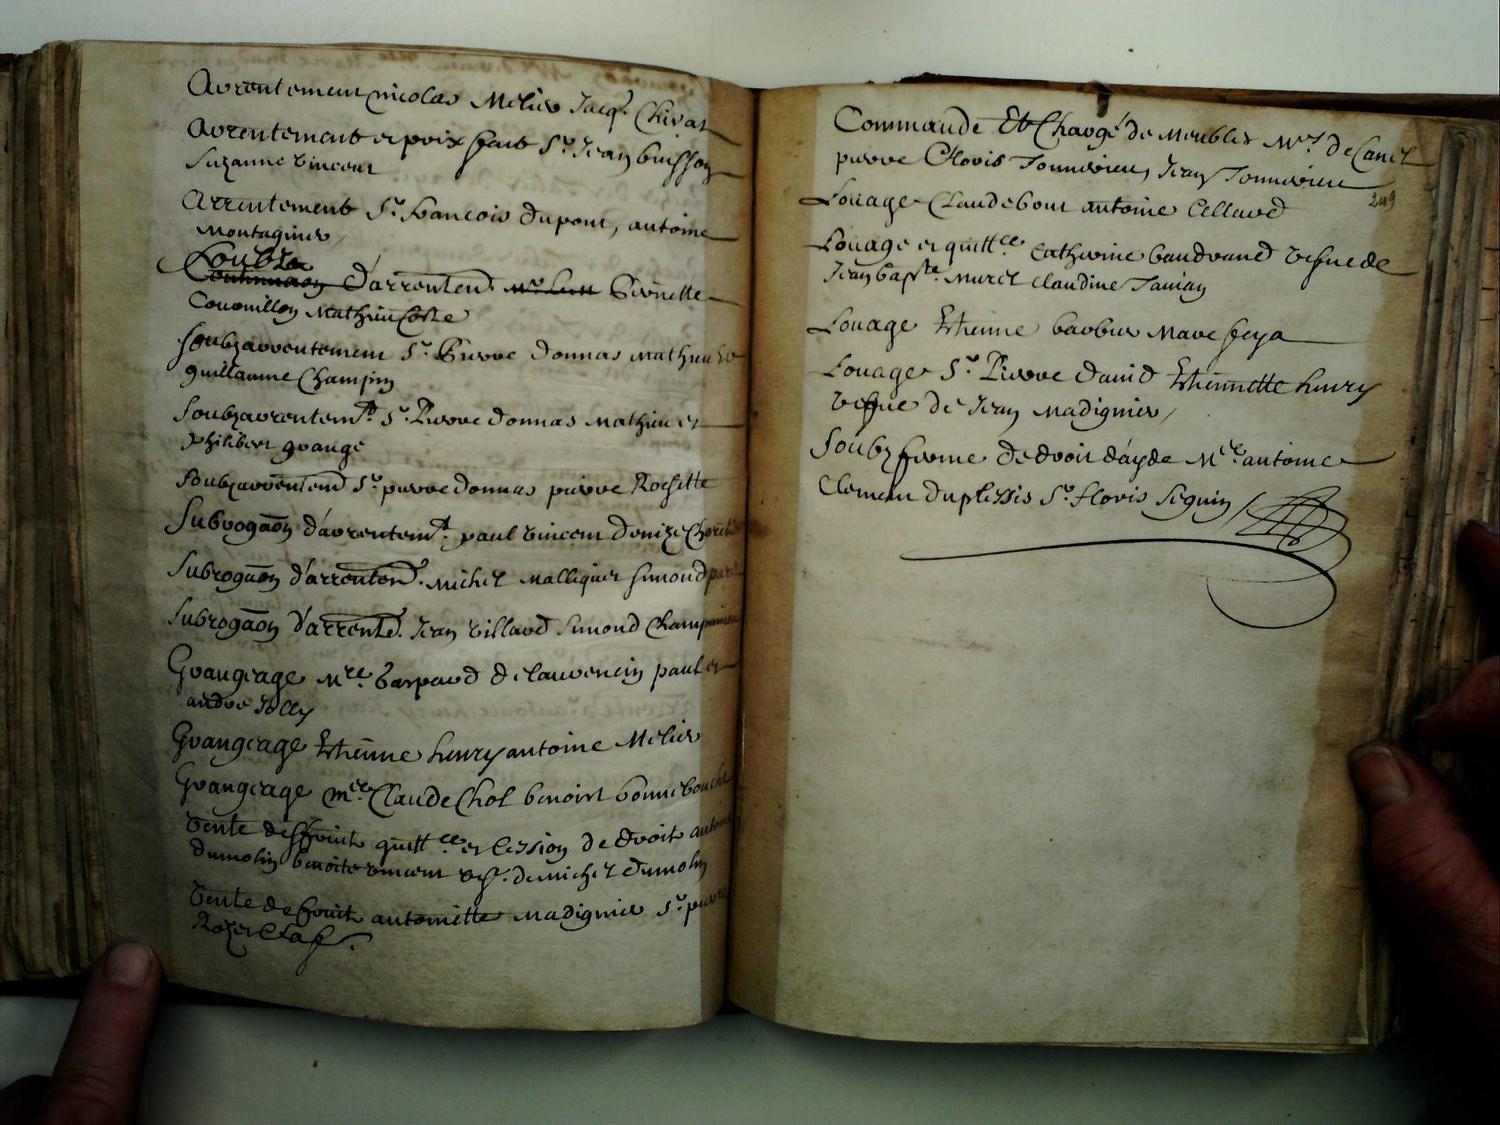 Arrentement nicolas Melier Jacq. Chirat
Arrentement et prix fait Sr. Jean buisson
Suzanne vincent
Arrentement Sr. francois dupont, antoine
Montagnier
Soubz
d'arrentem. Pierrette
Couvrillon Mathieu Coste
Soubzarrentement Sr. Pierre donnas Mathieu et
guillaume Champin
Soubzarrentemt. Sr. Pierre donnas Mathieu et
philibert grange
Soubzarrentem Sr. pierre donnas pierre Rochette
Subrogaon d'arrentemt. paul vincent denize
Subrogaon d'arrentem. Michel Malliquet Simond
Subrogaon d'arrente. Jean villard Simond
Grangeage Mre. Gaspard de laurencin paul et
andre Jolly
Grangeage Etienne henry antoine Melier
Grangeage Mre. Claude Chol benoist bonnebouche
Vente de fruit quittce. et Cession de droit
dumolin benoite vincent vef. de michel dumolin
Vente de fruit antoinette Madignier Sr.
Rozet
Commande Et Charge de Meubles Mrs. de Canel
pierre Clovis Tonnerieu, Jean Tonnerieu
249
Louage Claude bout antoine Cellard
Louage et quittce. Catherine baudrand vefue de
Jean bapste. Muret Claudine
Louage Etienne barbier Marc feya
Louage Sr. Pierre david Etiennette henry
vefue de Jean Madignier
Soubz ferme de droit d'ayde Mre. antoine
Clement duplessis Sr. floris Seguin